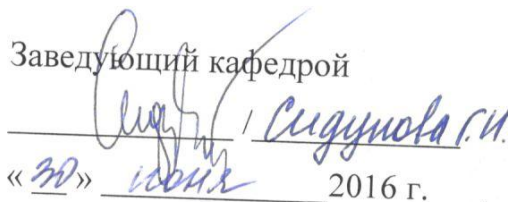 Заведующий кафедрой
/ Сидунова Г.И.
« 30 » июня 2016 г.